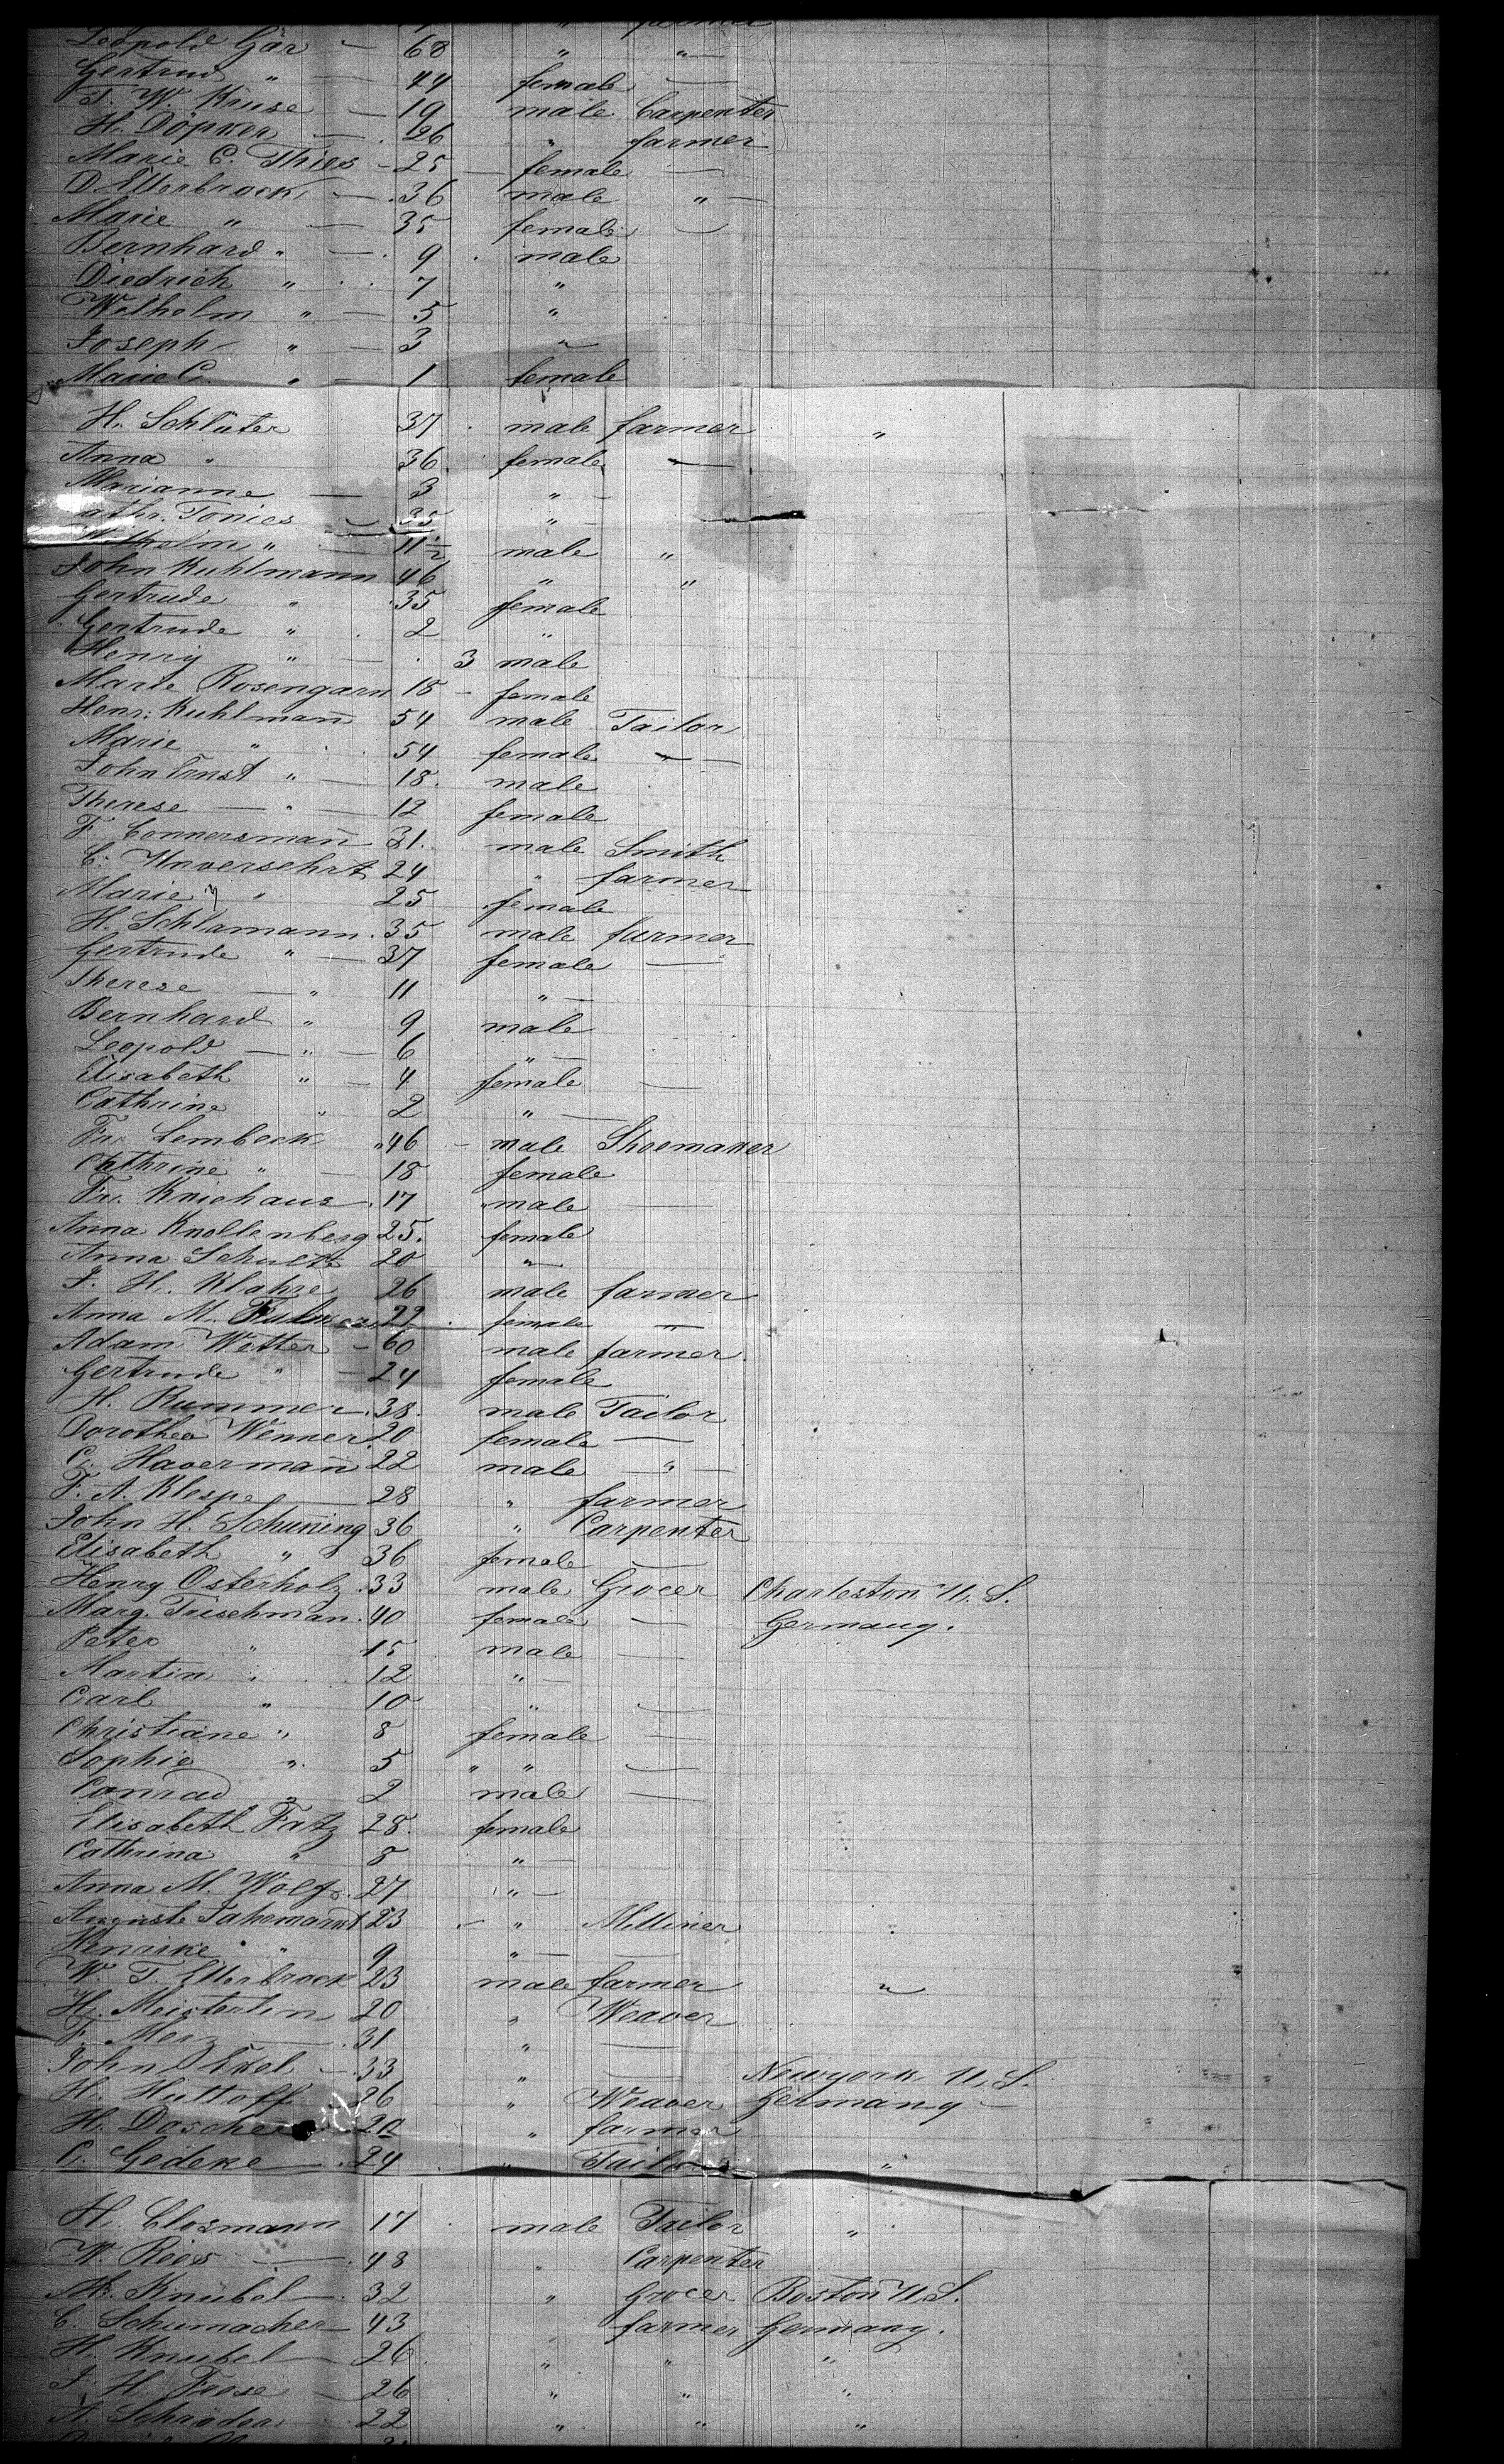 Leopold Gär — 68 " "
Gertrud " — 44 female —
T. W. Kruse — 19 male Carpenter
H. Döpker — 26 " farmer
Marie C. Thies - 25 — female —
D. Ellerbrock — 36 male " —
Marie " — 35 female —
Bernhard " — 9 male
Diedrich " 7 "
Wilhelm " — 5 "
Joseph " — 3 "
Marie C. " — 1 female
H. Schluter 37 male farmer "
Anna " 36 female —
Marianne — 3 " -
athr. Tonies — 35 " -
Wilhelm " 11 1/2 male "
John Kuhlmann 46 " "
Gertrude " 35 female
Gertrude " 2 "
Henry " — 3 male
Marie Rosengarn 18 - female
Henr. Kuhlmann 54 male Tailor
Marie " 54 female —
John Ernst " — 18 male
Therese — " — 12 female
F. Connersmann 31. male Smith
C. Unversehrt 24 " farmer
Marie " 25 female
H. Schlamann 35 male farmer
Gertrude " — 37 female —
Therese — " 11 " —
Bernhard " 9 male
Leopold — " — 6 " —
Elisabeth " — 4 female —
Cathrine " 2 " —
Fr. Lembeck " 46 - male Shoemaker
Cathrine " — 18 female
Fr. Kniehaus 17 male —
Anna Knollenberg 25. female
Anna Schulte 20 "
F. H. Klahze 26 male farmer
Anna M. 22 female —
Adam Wetter - 60 male farmer
Gertrude " — 24 female
H. Rummer 38. male Tailor
Dorothea Wenner 20 female —
C. Haverman 22 male — " —
F. A. Klespe — 28 " farmer
John H. Schuning 36 " Carpenter
Elisabeth " 36 female —
Henry Osterholz 33 male Grocer Charleston U. S.
Marg. Trischman 40 female — Germany.
Peter " 15 male —
Martin " 12 " —
Carl " 10 " —
Christiane " 8 female —
Sophie " 5 " " —
Conrad " 2 male —
Elisabeth Fatz 28. female
Cathrina " 8 " —
Anna M. Wolf 27 " —
Auguste 23 - " Milliner
Henrike " 9 " — —
W. T. Ellerbrock 23 male farmer "
H. Meisterlin 20 " Weaver
F. Merz — 31 " —
John Exel — 33 " — Newyork U. S.
H. Huttoff 26 " Weaver Germany —
H. Doscher 20 " farmer
C. Gedeke — 24 " Tailor "
H. Closmann 17 male Tailor "
W. Rees — 48 " Carpenter
M. Knubel — 32 " Grocer Boston U.S.
C. Schumacher 43 farmer Germany.
H. Knubel — 26. " " "
J. H. Frese — 26 " " "
A. Schroder 22 " " "